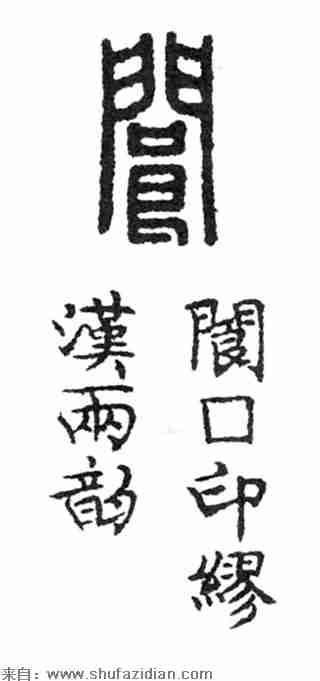 閬
閬□印繆
漢兩韵
来自：www.shufazidian.com